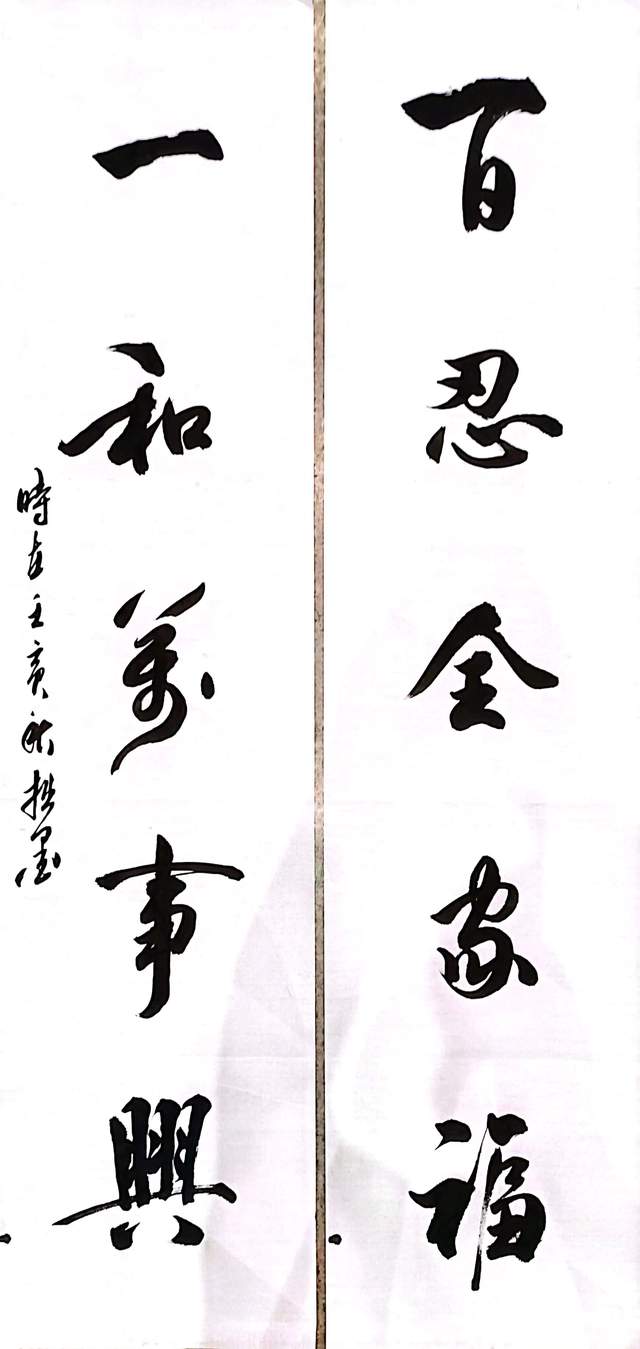 百忍全家福
一和萬事興
時在壬寅秋拙墨